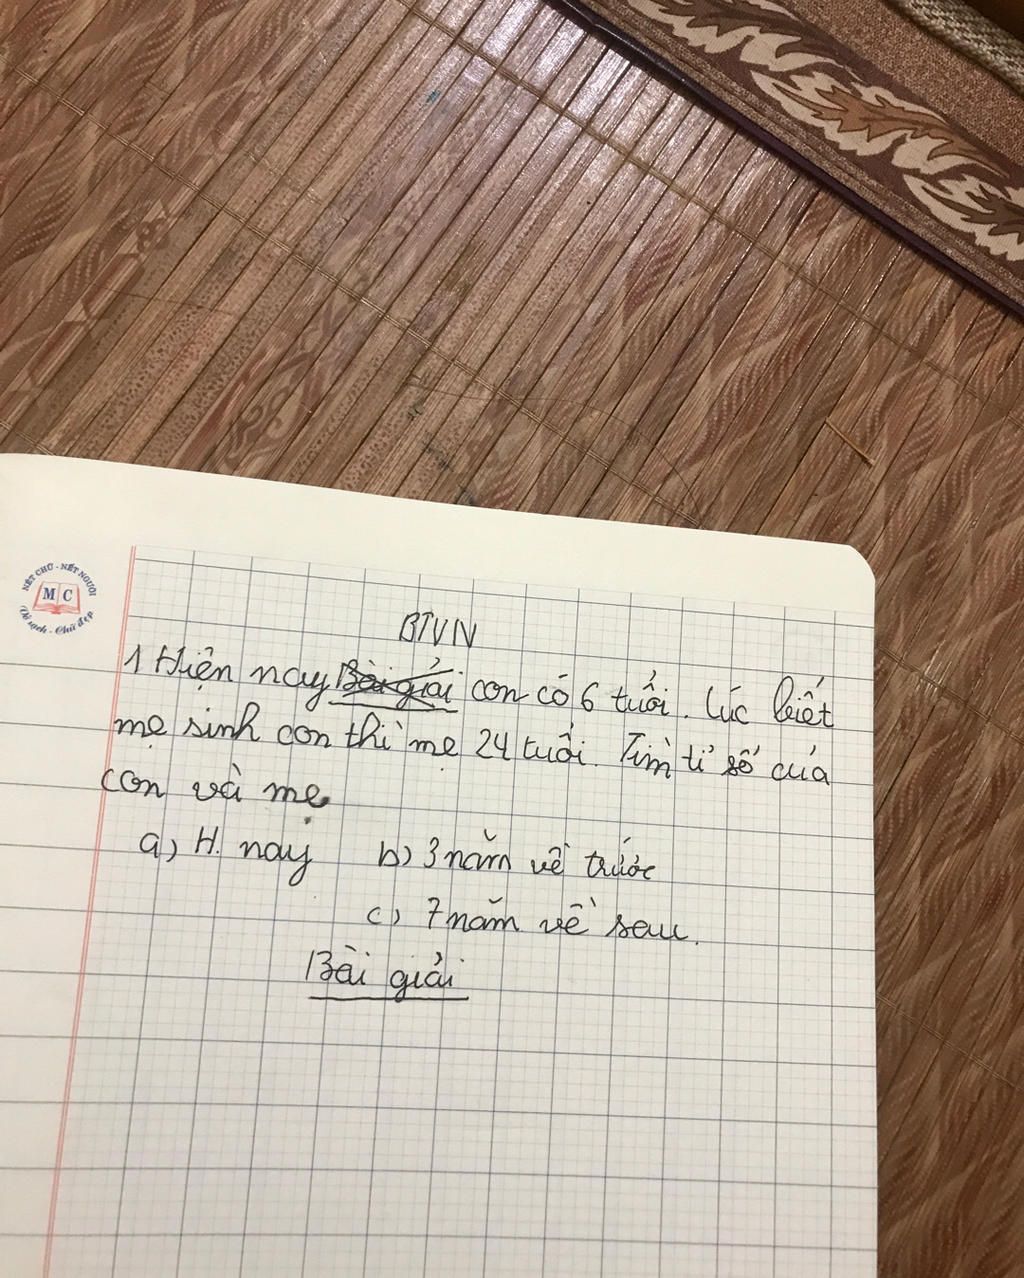 NÉT CHỮ - NẾT NGƯỜI
MC
Vở sạch - Chữ đẹp
BTVN
1 Hiện nay Bài giải con có 6 tuổi. Lúc biết
mẹ sinh con thì mẹ 24 tuổi. Tìm tỉ số của
con và mẹ
a) H. nay b) 3 năm về trước
c) 7 năm về sau.
Bài giải